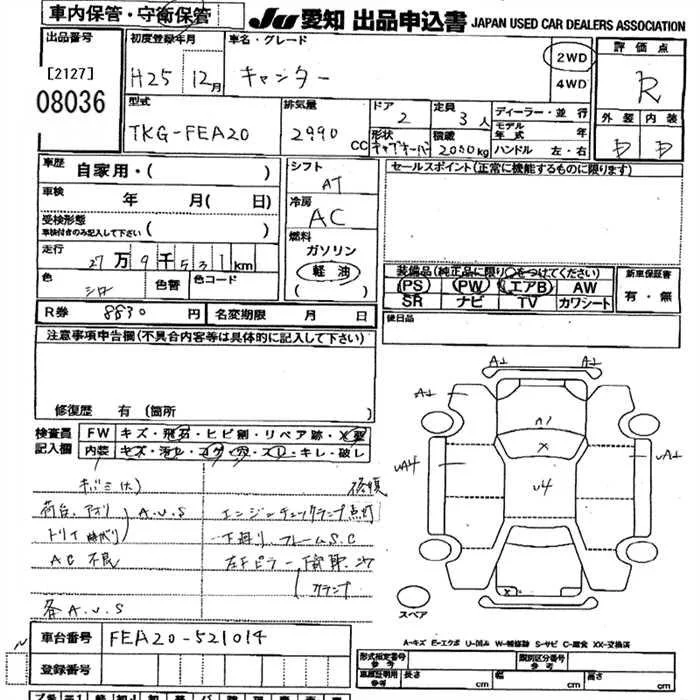 車内保管・守衛保管
JU 愛知 出品申込書 JAPAN USED CAR DEALERS ASSOCIATION
出品番号
[2127]
08036
初度登録年月
H25 12月
車名・グレード
キャンター
2WD
4WD
評価点
R
外装 内装
D D
型式
TKG-FEA20
排気量
2990 CC
ドア
2
定員
3人
形状
積載
2000kg
ディーラー・並行
モデル年式 年
ハンドル 左・右
車歴
自家用・( )
車検
年 月( 日)
受検形態
車検付きのみ記入して下さい ( )
走行
27万9千531km
色
シロ
色替
色コード
R券 8830円
名変期限 月 日
シフト
AT
冷房
AC
燃料
ガソリン
軽油
( )
セールスポイント(正常に機能するものに限ります)
装備品(純正品に限り○をつけてください)
PS PW エアB AW
SR ナビ TV カワシート
新車保証書
有・無
後日品
注意事項申告欄(不具合内容等は具体的に記入して下さい)
修復歴 有 (箇所 )
検査員記入欄
FW キズ・飛石・ヒビ割・リペア跡・X要
内装 キズ・汚レ・コゲ・穴・スレ・キレ・破レ
荷台、アオリ A.U.S
エンジンチェックランプ点灯
下廻り、フレームS.C
AC 不良
各A.U.S
A1 A1
A1
A1
UA4
U4
X
スペア
A-キズ E-エクボ U-凹み W-補修跡 S-サビ C-腐食 XX-交換済
車台番号 FEA20-521014
登録番号
形式指定番号 参考
類別区分番号 参考
車庫証明用 参考
長さ cm
幅 cm
高さ cm